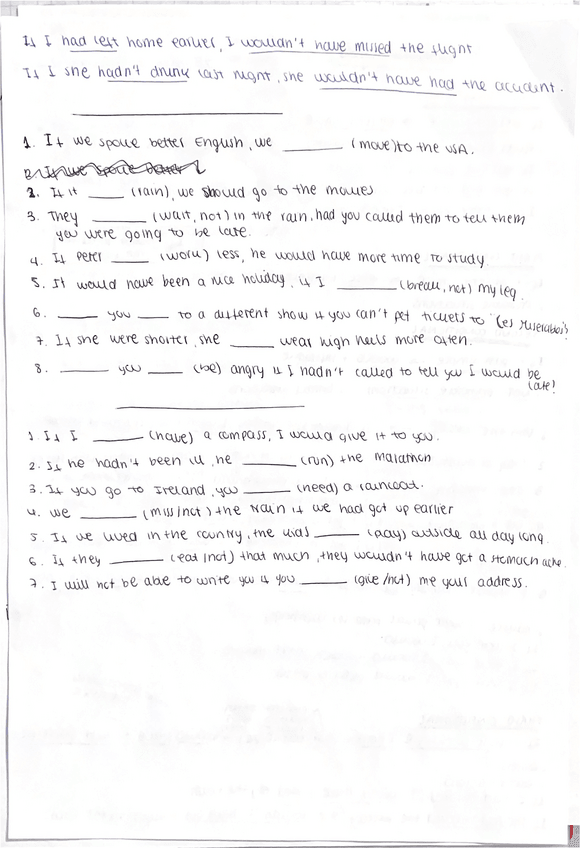 If I had left home earlier, I wouldn't have missed the flight
If I she hadn't drunk last night, she wouldn't have had the accident.
1. If we spoke better English, we ______ (move) to the USA.
2. If it ____ (rain), we should go to the movies
3. They ______ (wait, not) in the rain, had you called them to tell them
you were going to be late.
4. If Peter ____ (work) less, he would have more time to study
5. It would have been a nice holiday, if I ______ (break, not) my leg.
6. ______ you ____ to a different show if you can't get tickets to 'Les Miserables'?
7. If she were shorter, she _____ wear high heels more often.
8. ______ you ____ (be) angry if I hadn't called to tell you I would be
late?
1. If I ______ (have) a compass, I would give it to you.
2. If he hadn't been ill, he ______ (run) the marathon
3. If you go to Ireland, you _____ (need) a raincoat.
4. We ______ (miss/not) the train if we had got up earlier
5. If we lived in the country, the kids _____ (play) outside all day long.
6. If they ______ (eat/not) that much, they wouldn't have got a stomach ache.
7. I will not be able to write you if you _____ (give/not) me your address.